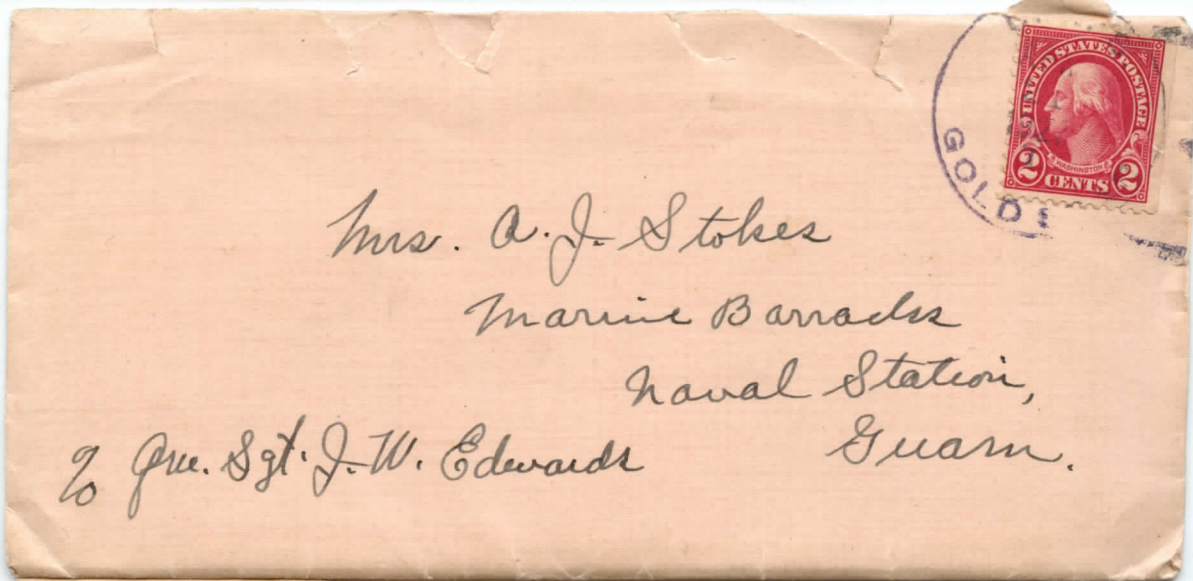 UNITED STATES POSTAGE
WASHINGTON
2 CENTS 2
GOLD
Mrs. A. J. Stokes
Marine Barracks
Naval Station,
Guam.
c/o Qm. Sgt. J. W. Edwards